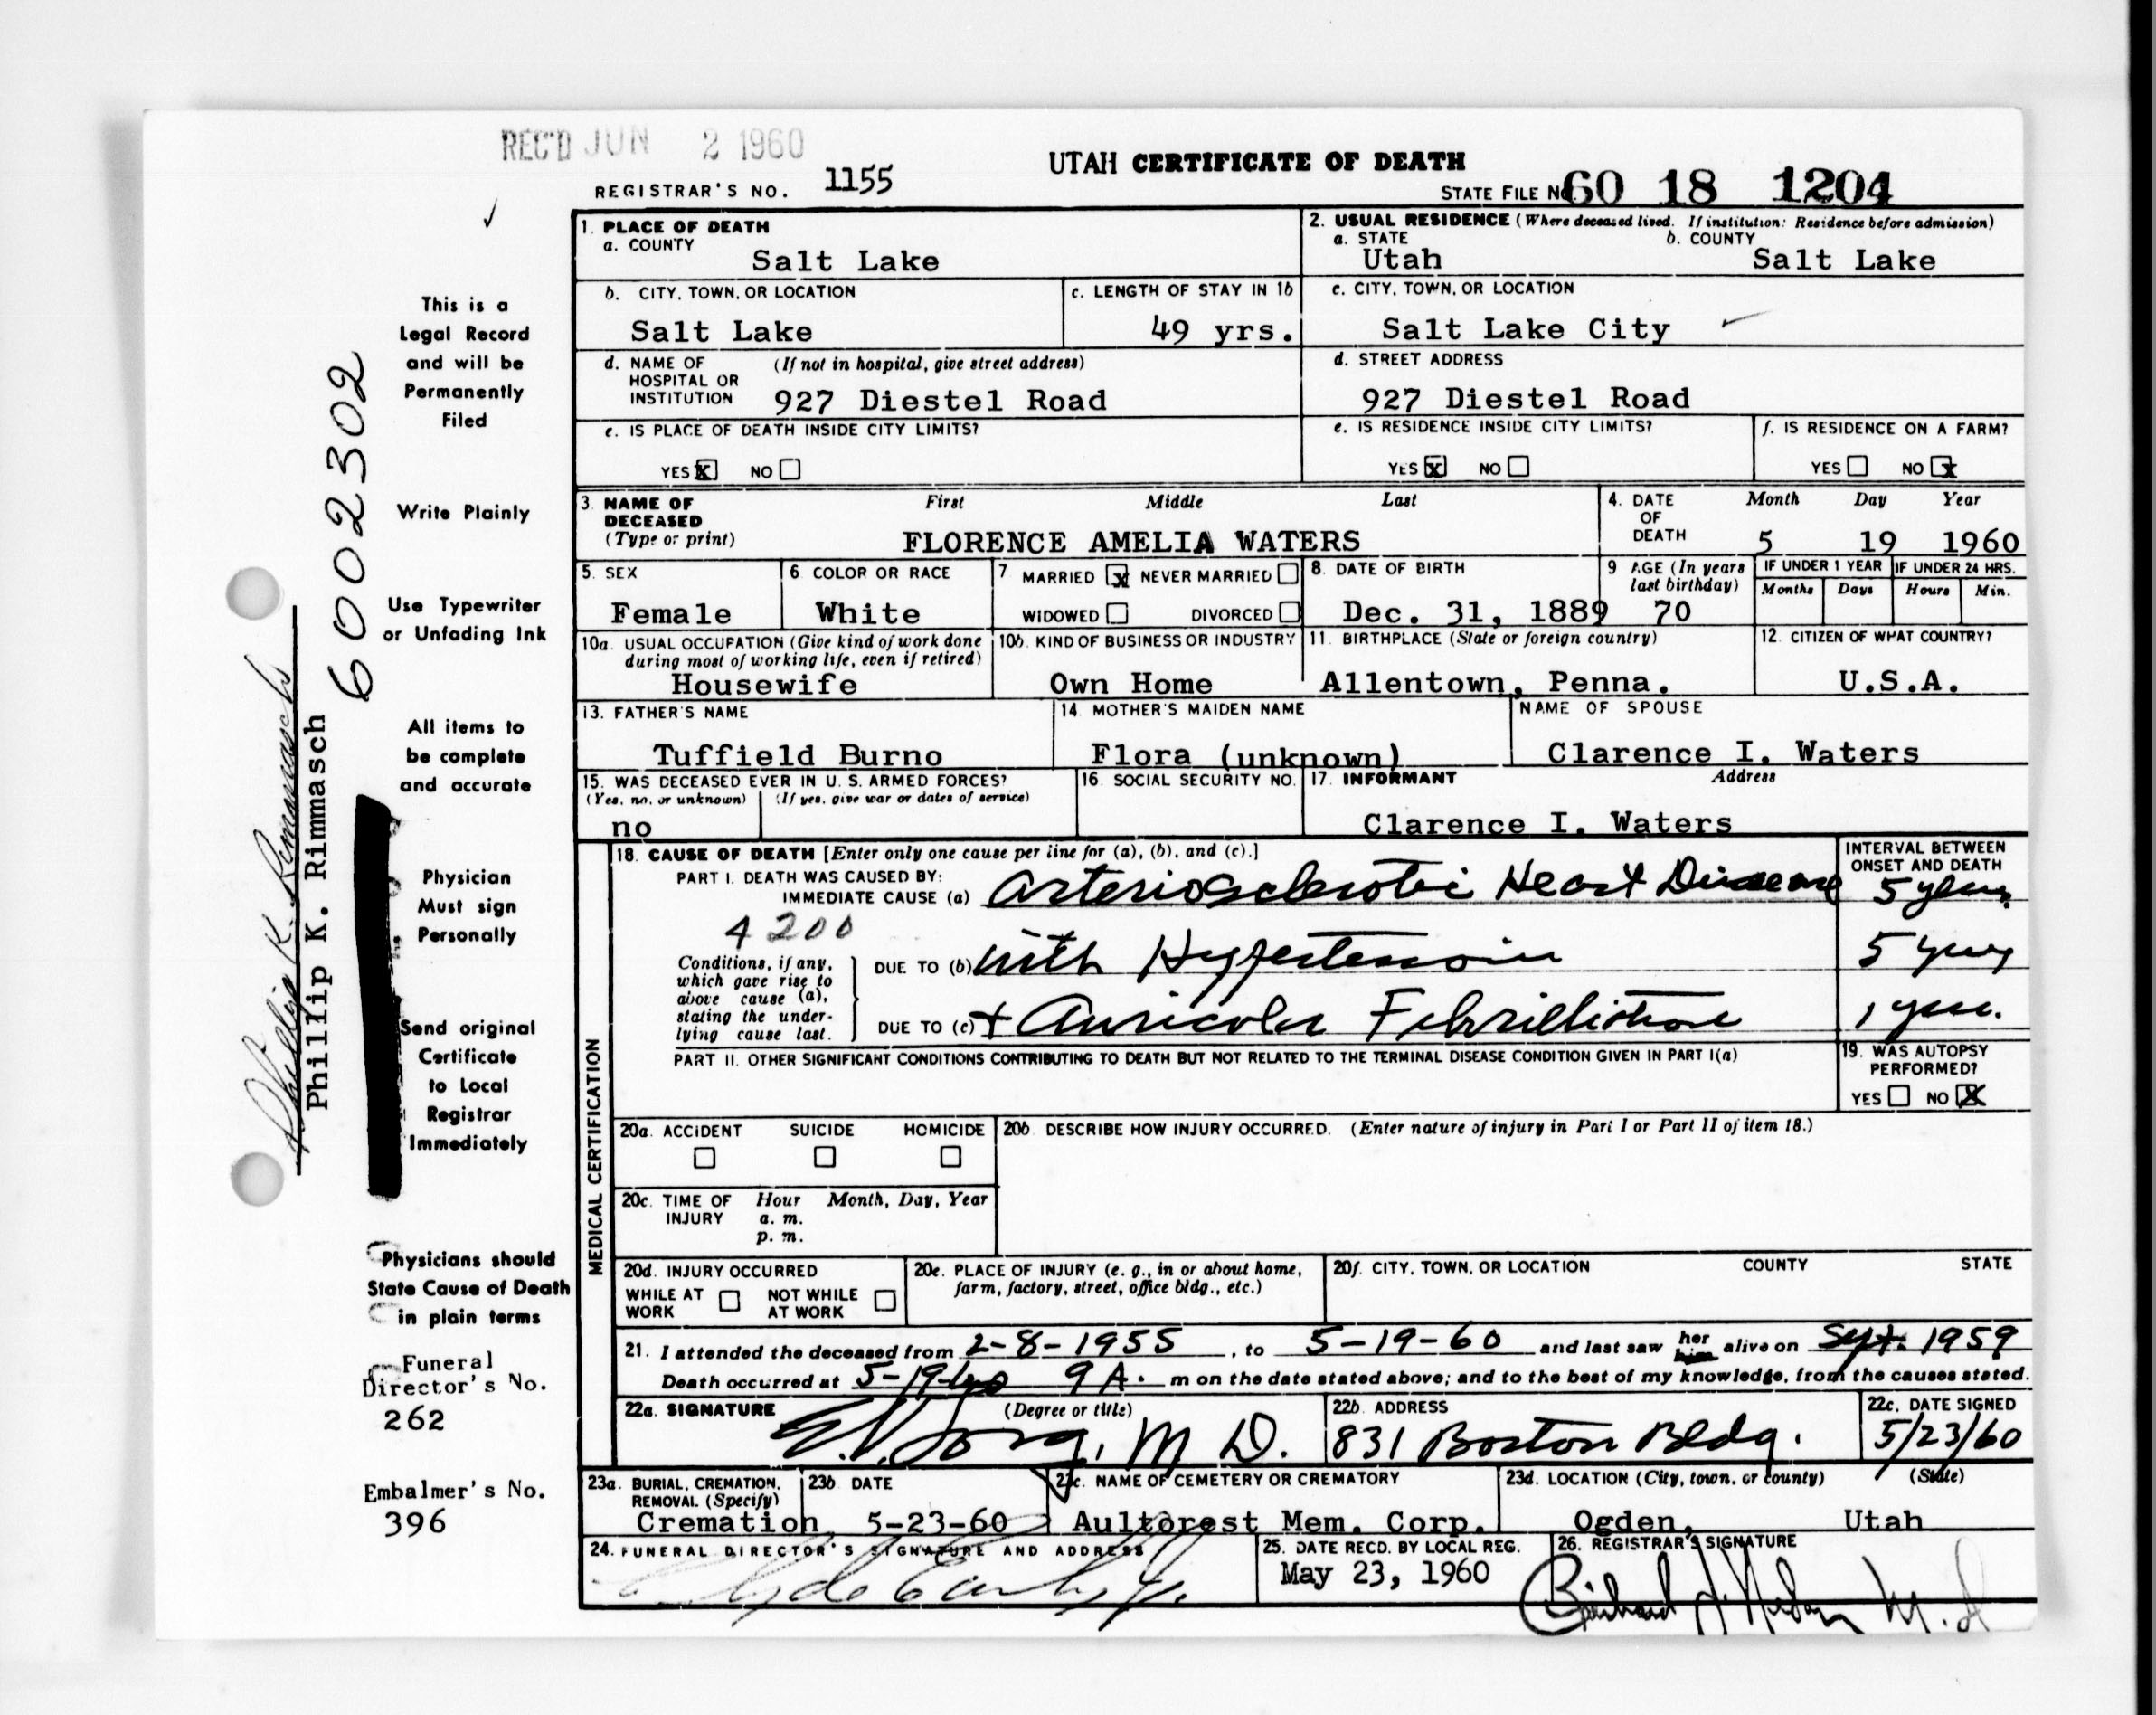 REC'D JUN 2 1960
REGISTRAR'S NO. 1155
UTAH CERTIFICATE OF DEATH
STATE FILE NO 60 18 1204
This is a
Legal Record
and will be
Permanently
Filed
Write Plainly
Use Typewriter
or Unfading Ink
All items to
be complete
and accurate
Physician
Must sign
Personally
Send original
Certificate
to Local
Registrar
Immediately
Physicians should
State Cause of Death
in plain terms
Funeral
Director's No.
262
Embalmer's No.
396
6002302
Phillip K. Rimmasch
Phillip K. Rimmasch
1. PLACE OF DEATH
a. COUNTY
Salt Lake
2. USUAL RESIDENCE (Where deceased lived. If institution: Residence before admission)
a. STATE b. COUNTY
Utah Salt Lake
b. CITY, TOWN, OR LOCATION
Salt Lake
c. LENGTH OF STAY IN 1b
49 yrs.
c. CITY, TOWN, OR LOCATION
Salt Lake City
d. NAME OF (If not in hospital, give street address)
HOSPITAL OR
INSTITUTION 927 Diestel Road
d. STREET ADDRESS
927 Diestel Road
e. IS PLACE OF DEATH INSIDE CITY LIMITS?
YES X NO
e. IS RESIDENCE INSIDE CITY LIMITS?
YES X NO
f. IS RESIDENCE ON A FARM?
YES NO X
3. NAME OF First Middle Last
DECEASED
(Type or print) FLORENCE AMELIA WATERS
4. DATE Month Day Year
OF
DEATH 5 19 1960
5. SEX
Female
6. COLOR OR RACE
White
7. MARRIED X NEVER MARRIED
WIDOWED DIVORCED
8. DATE OF BIRTH
Dec. 31, 1889
9 AGE (In years
last birthday)
70
IF UNDER 1 YEAR IF UNDER 24 HRS.
Months Days Hours Min.
10a. USUAL OCCUPATION (Give kind of work done
during most of working life, even if retired)
Housewife
10b. KIND OF BUSINESS OR INDUSTRY
Own Home
11. BIRTHPLACE (State or foreign country)
Allentown, Penna.
12. CITIZEN OF WHAT COUNTRY?
U.S.A.
13. FATHER'S NAME
Tuffield Burno
14. MOTHER'S MAIDEN NAME
Flora (unknown)
NAME OF SPOUSE
Clarence I. Waters
15. WAS DECEASED EVER IN U. S. ARMED FORCES?
(Yes, no, or unknown) (If yes, give war or dates of service)
no
16. SOCIAL SECURITY NO.
17. INFORMANT Address
Clarence I. Waters
MEDICAL CERTIFICATION
18. CAUSE OF DEATH [Enter only one cause per line for (a), (b), and (c).]
PART I. DEATH WAS CAUSED BY:
IMMEDIATE CAUSE (a) Arteriosclerotic Heart Disease
4200
Conditions, if any,
which gave rise to
above cause (a),
stating the under-
lying cause last.
DUE TO (b) with Hypertension
DUE TO (c) + Auricular Fibrillation
INTERVAL BETWEEN
ONSET AND DEATH
5 years
5 years
1 year.
PART II. OTHER SIGNIFICANT CONDITIONS CONTRIBUTING TO DEATH BUT NOT RELATED TO THE TERMINAL DISEASE CONDITION GIVEN IN PART I(a)
19. WAS AUTOPSY
PERFORMED?
YES NO X
20a. ACCIDENT SUICIDE HOMICIDE
20b. DESCRIBE HOW INJURY OCCURRED. (Enter nature of injury in Part I or Part II of item 18.)
20c. TIME OF Hour Month, Day, Year
INJURY a. m.
p. m.
20d. INJURY OCCURRED
WHILE AT NOT WHILE
WORK AT WORK
20e. PLACE OF INJURY (e. g., in or about home,
farm, factory, street, office bldg., etc.)
20f. CITY, TOWN, OR LOCATION COUNTY STATE
21. I attended the deceased from 2-8-1955, to 5-19-60 and last saw her him alive on Sept. 1959
Death occurred at 5-19-60 9 A. m on the date stated above; and to the best of my knowledge, from the causes stated.
22a. SIGNATURE (Degree or title)
M D.
22b. ADDRESS
831 Boston Bldg.
22c. DATE SIGNED
5/23/60
23a. BURIAL, CREMATION,
REMOVAL (Specify)
Cremation
23b. DATE
5-23-60
23c. NAME OF CEMETERY OR CREMATORY
Aultorest Mem. Corp.
23d. LOCATION (City, town, or county) (State)
Ogden, Utah
24. FUNERAL DIRECTOR'S SIGNATURE AND ADDRESS
25. DATE RECD. BY LOCAL REG.
May 23, 1960
26. REGISTRAR'S SIGNATURE
M.D